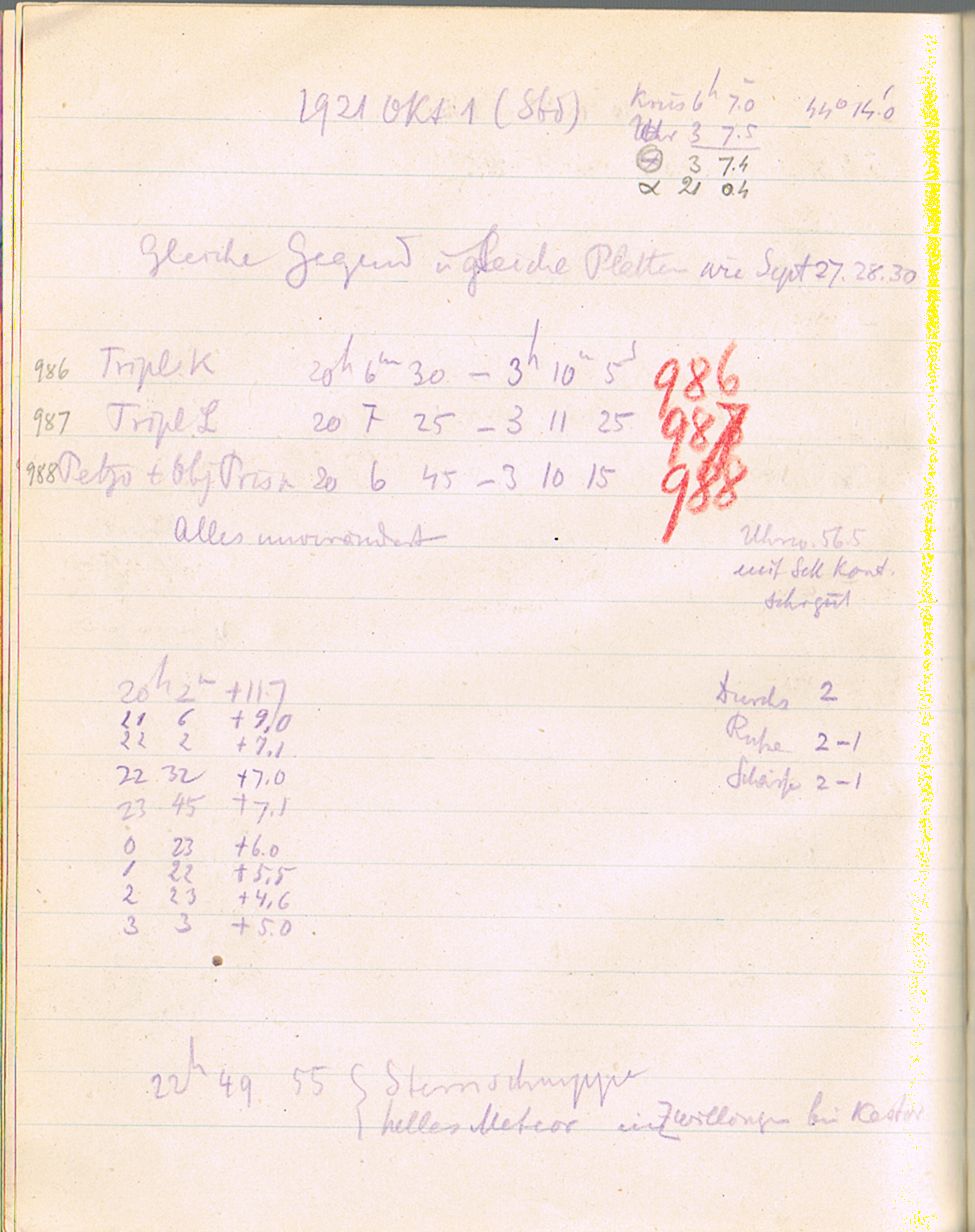 1921 Okt 1 (Stö)
Kreis 6h 7.0 44° 14.0'
Uhr 3 7.5
3 7.4
α 21 0.4
Gleiche Gegend u gleiche Platten wie Sept 27. 28. 30
986 Tripl. K 20h 6m 30 – 3h 10m 5s 986
987 Tripl L 20 7 25 – 3 11 25 987
988 Petzv + Obj Prism 20 6 45 – 3 10 15 988
Alles unverändert
Uhrw. 56.5
mit Sek Kont.
sehr gut
20h 2m +11.7
21 6 +9,0
22 2 +7,1
22 32 +7.0
23 45 +7,1
0 23 +6.0
1 22 +5,5
2 23 +4,6
3 3 +5.0
Durchs 2
Ruhe 2–1
Schärfe 2–1
22h 49 55 { Sternschnuppe
helles Meteor in Zwillingen bei Kastor